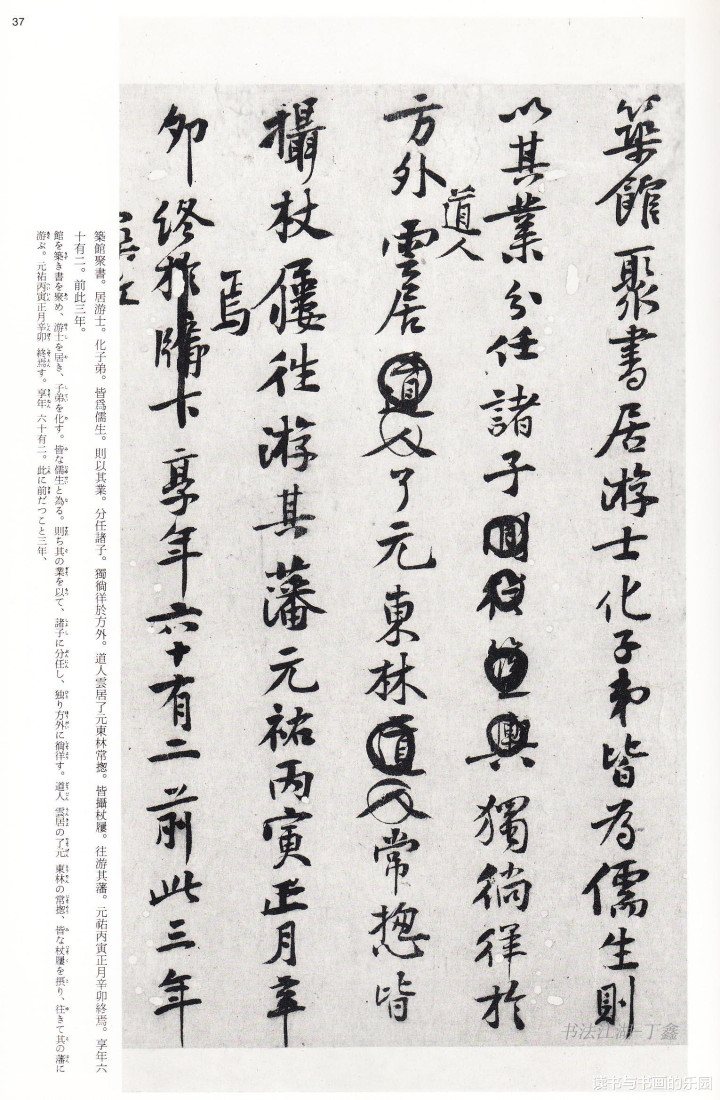 37
築館聚書居游士化子弟皆為儒生則
以其業分任諸子獨徜徉於
道人
方外雲居道人了元東林道人常揔皆
攝杖屨往游其藩元祐丙寅正月辛
焉
卯終於牖下享年六十有二前此三年
築館聚書。居游士。化子弟。皆爲儒生。則以其業。分任諸子。獨徜徉於方外。道人雲居了元東林常揔。皆攝杖屨。往游其藩。元祐丙寅正月辛卯終焉。享年六
十有二。前此三年。
館を築き書を聚め、游士を居き、子弟を化す。皆な儒生と為る。則ち其の業を以て、諸子に分任し、独り方外に徜徉す。道人 雲居の了元 東林の常揔、皆な杖屨を摂り、往きて其の藩に
游ぶ。元祐丙寅正月辛卯 終焉す。享年 六十有二。此に前だつこと三年、
书法江湖-丁鑫
读书与书画的乐园